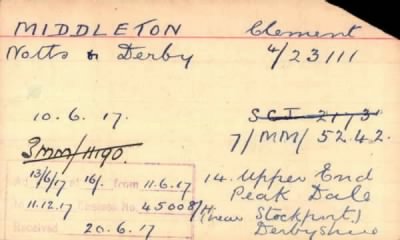 MIDDLETON Clement
Notts & Derby 4/23111
10.6.17. SCI 21731
7/MM/5242.
3MM/11190.
13/6/17 16/. from 11.6.17 14. Upper End
11.12.17 Enclose No. 45008/ Peak Dale
(near Stockport)
Received 20.6.17 Derbyshire